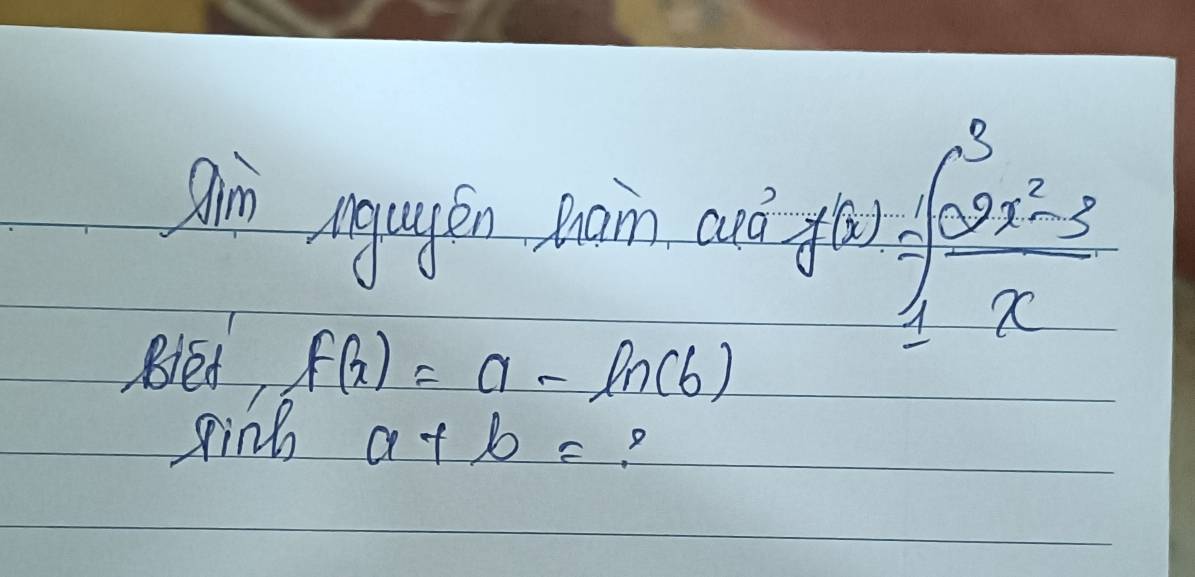 Tìm nguyên hàm của f(x) = ∫₁³ (2x² - 3)/x
Biết, F(x) = a - ln(b)
Tính a + b = ?